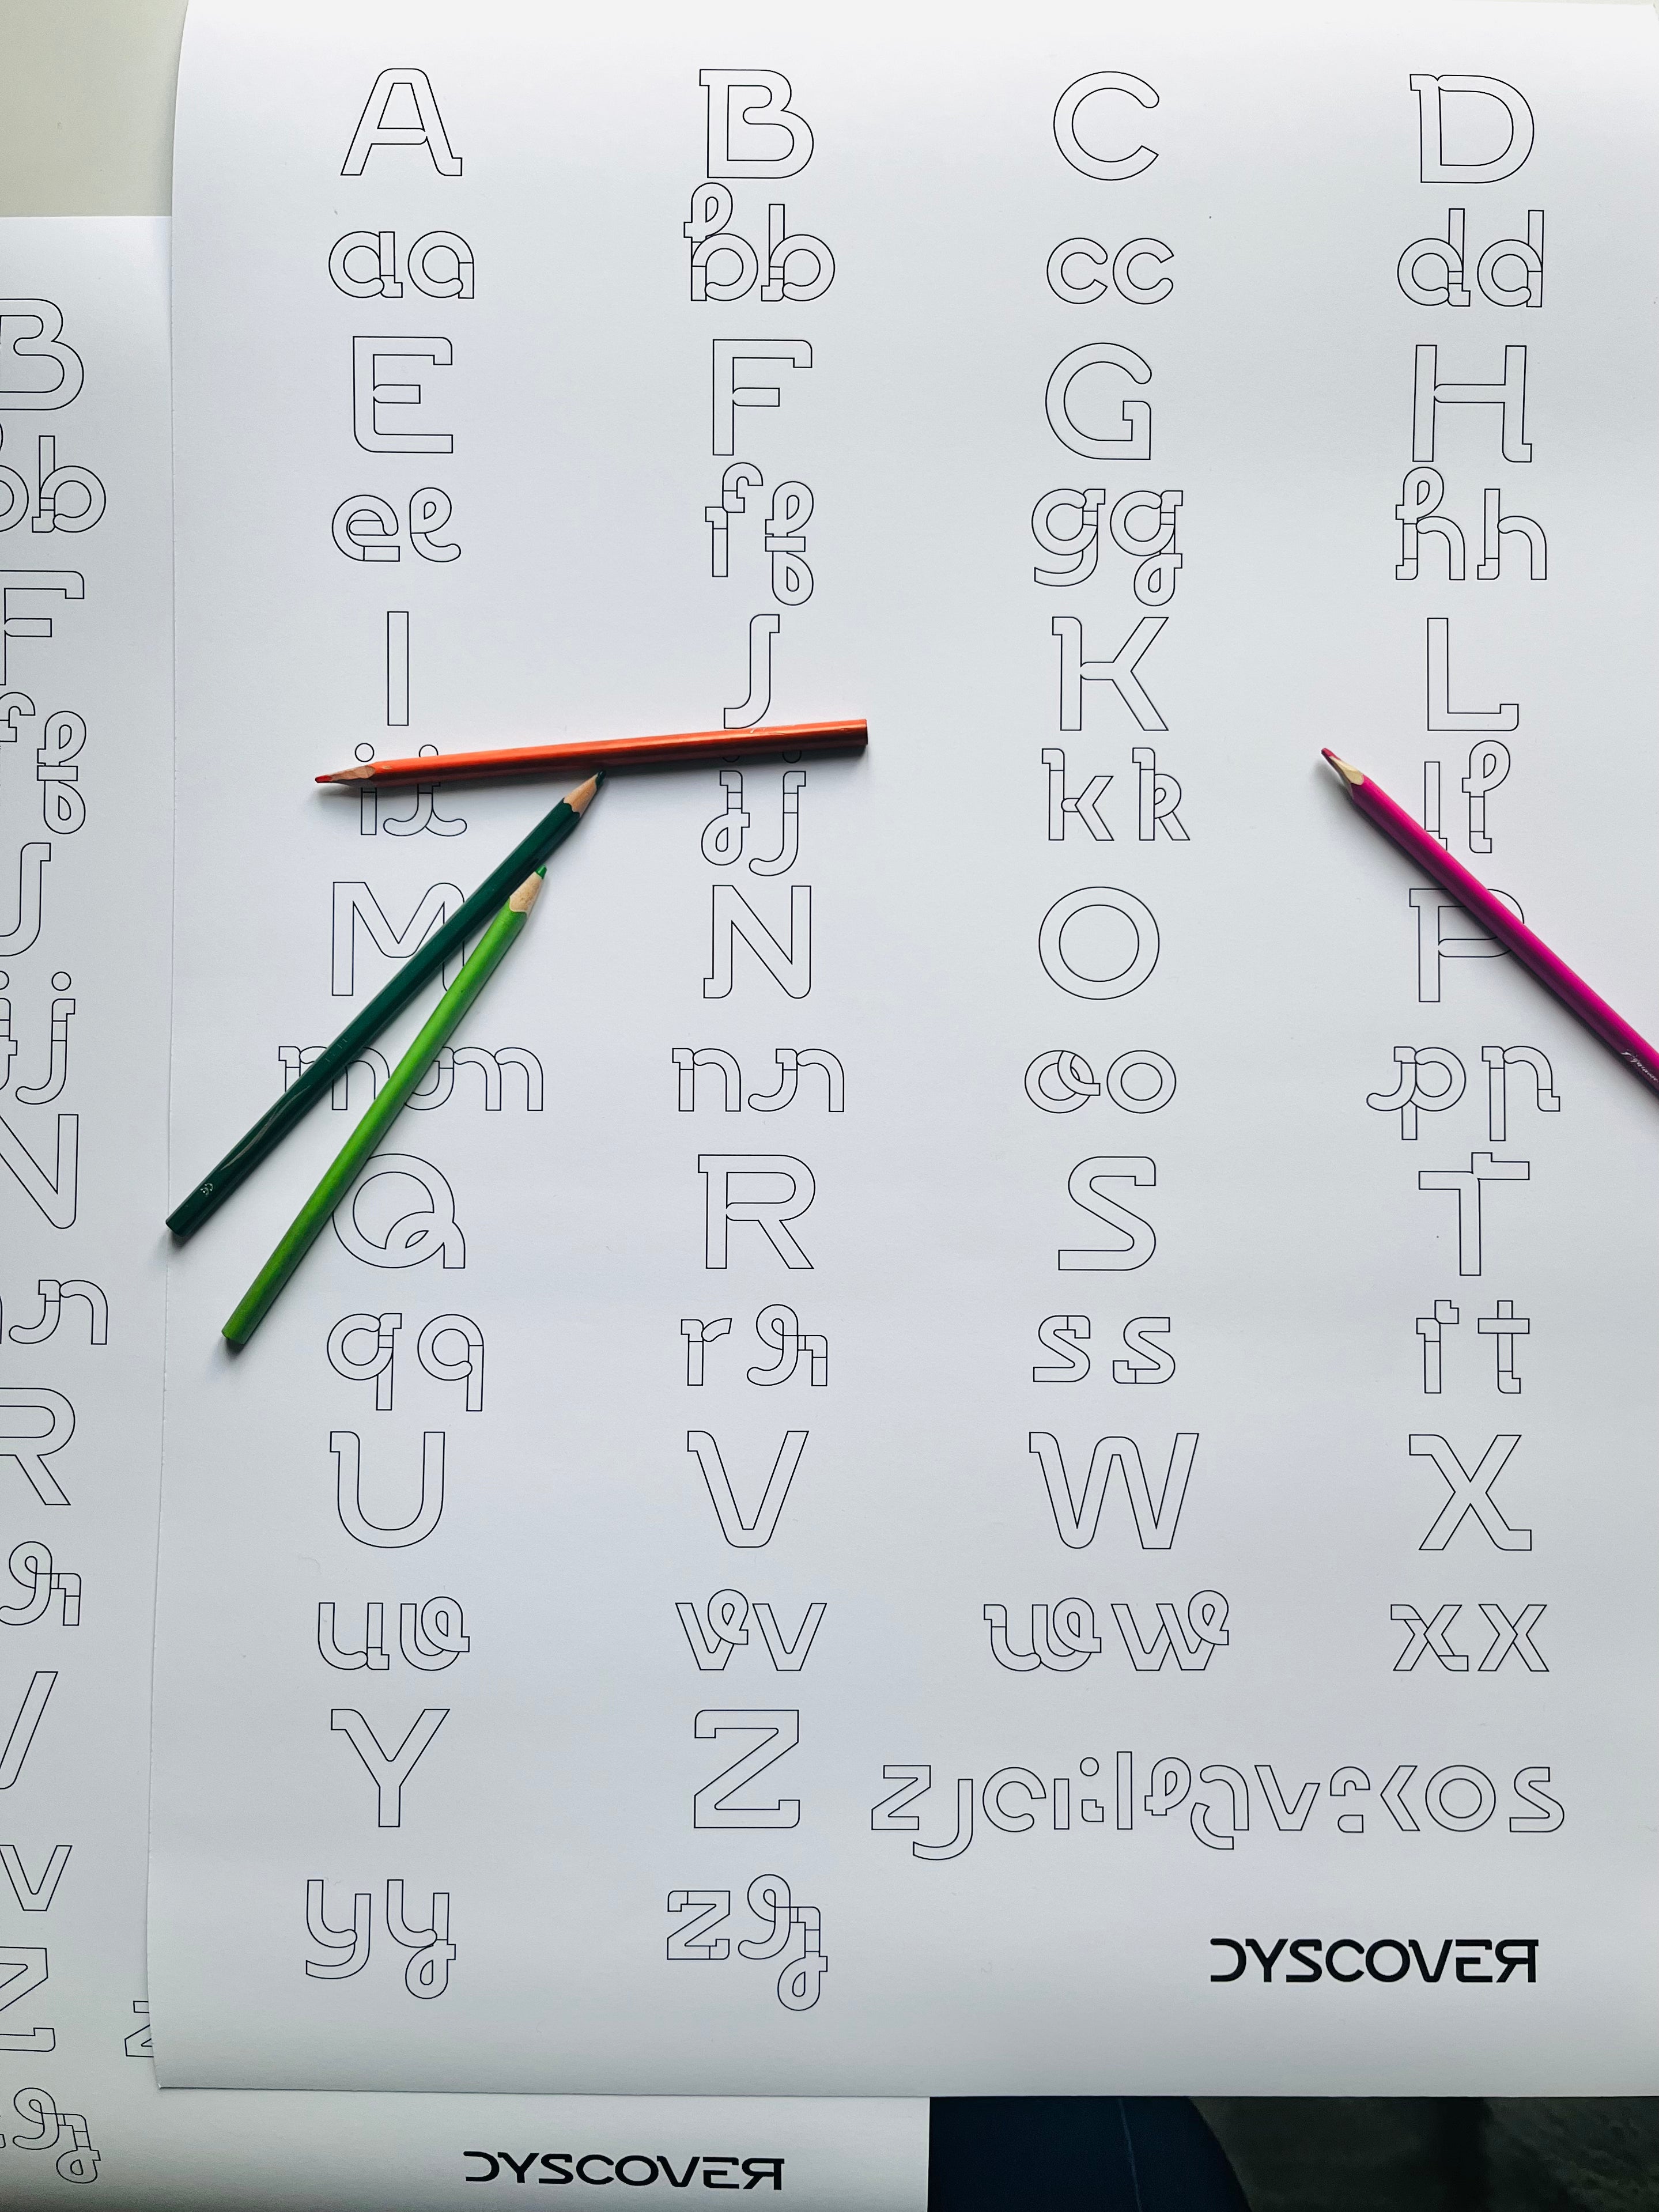 A B C D
aa bb cc dd
E F G H
ee ff gg hh
I J K L
ii jj kk ll
M N O P
mm nn oo pp
Q R S T
qq rr ss tt
U V W X
uu vv ww xx
Y Z
yy zz
DYSCOVER
B
bb
F
ff
J
jj
N
n
R
r
V
v
Z
z
DYSCOVER